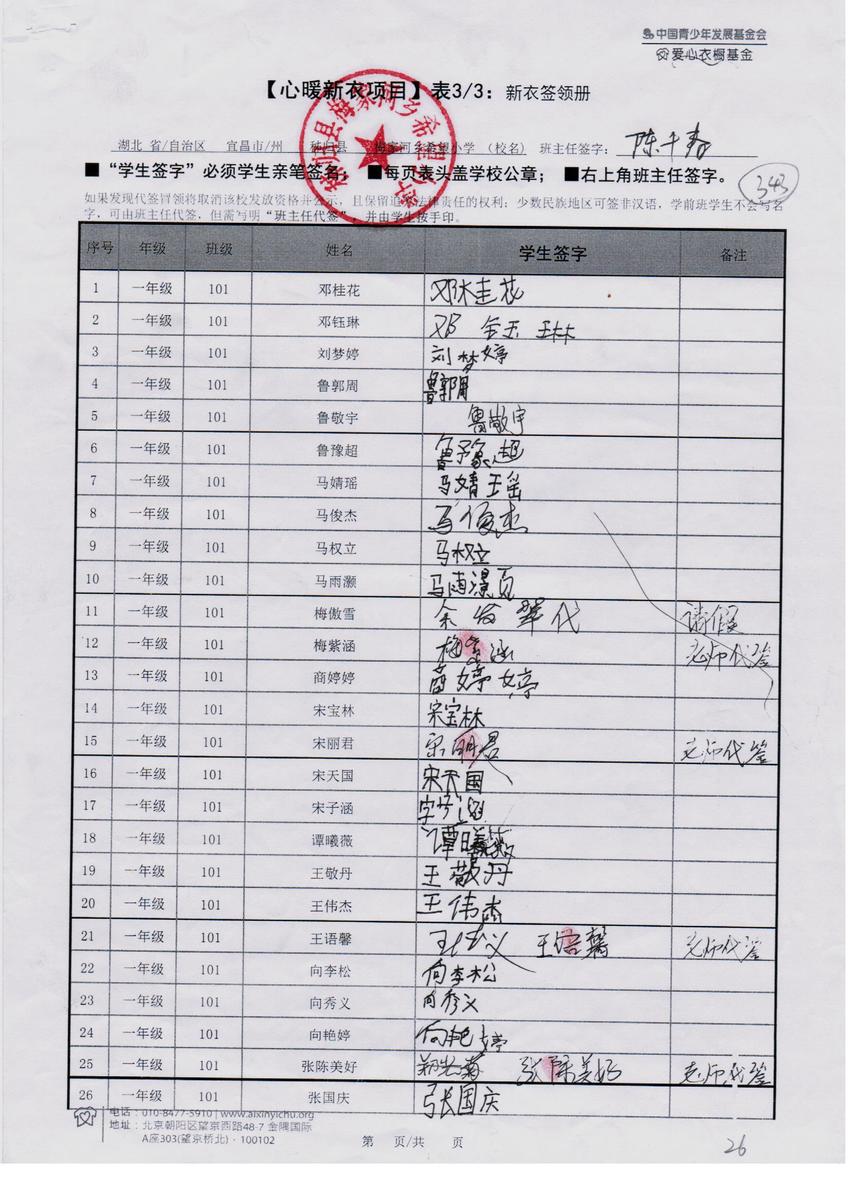 中国青少年发展基金会
爱心衣橱基金
【心暖新衣项目】表3/3：新衣签领册
湖北 省/自治区 宜昌市/州 秭归县 梅家河乡希望小学 （校名） 班主任签字：
■“学生签字”必须学生亲笔签名； ■每页表头盖学校公章； ■右上角班主任签字。
343
如果发现代签冒领将取消该校发放资格并公示，且保留追究法律责任的权利；少数民族地区可签非汉语，学前班学生不会写名
字，可由班主任代签，但需写明“班主任代签”，并由学生按手印。
序号 年级 班级 姓名 学生签字 备注
1 一年级 101 邓桂花 邓桂花
2 一年级 101 邓钰琳 邓钰琳
3 一年级 101 刘梦婷 刘梦婷
4 一年级 101 鲁郭周 鲁郭周
5 一年级 101 鲁敬宇 鲁敬宇
6 一年级 101 鲁豫超 鲁豫超
7 一年级 101 马婧瑶 马婧瑶
8 一年级 101 马俊杰 马俊杰
9 一年级 101 马权立 马权立
10 一年级 101 马雨灏 马雨灏
11 一年级 101 梅傲雪 代 请假
12 一年级 101 梅紫涵 梅紫涵 老师代签
13 一年级 101 商婷婷 商婷婷
14 一年级 101 宋宝林 宋宝林
15 一年级 101 宋丽君 宋丽君 老师代签
16 一年级 101 宋天国 宋天国
17 一年级 101 宋子涵
18 一年级 101 谭曦薇 谭曦薇
19 一年级 101 王敬丹 王敬丹
20 一年级 101 王伟杰 王伟杰
21 一年级 101 王语馨 王语馨 老师代签
22 一年级 101 向李松 向李松
23 一年级 101 向秀义 向秀义
24 一年级 101 向艳婷 向艳婷
25 一年级 101 张陈美好 张陈美好 老师代签
26 一年级 101 张国庆 张国庆
电话：010-8477-5910 | www.aixinyichu.org
地址：北京朝阳区望京西路48-7 金隅国际
A座303(望京桥北)·100102
第 页/共 页
26